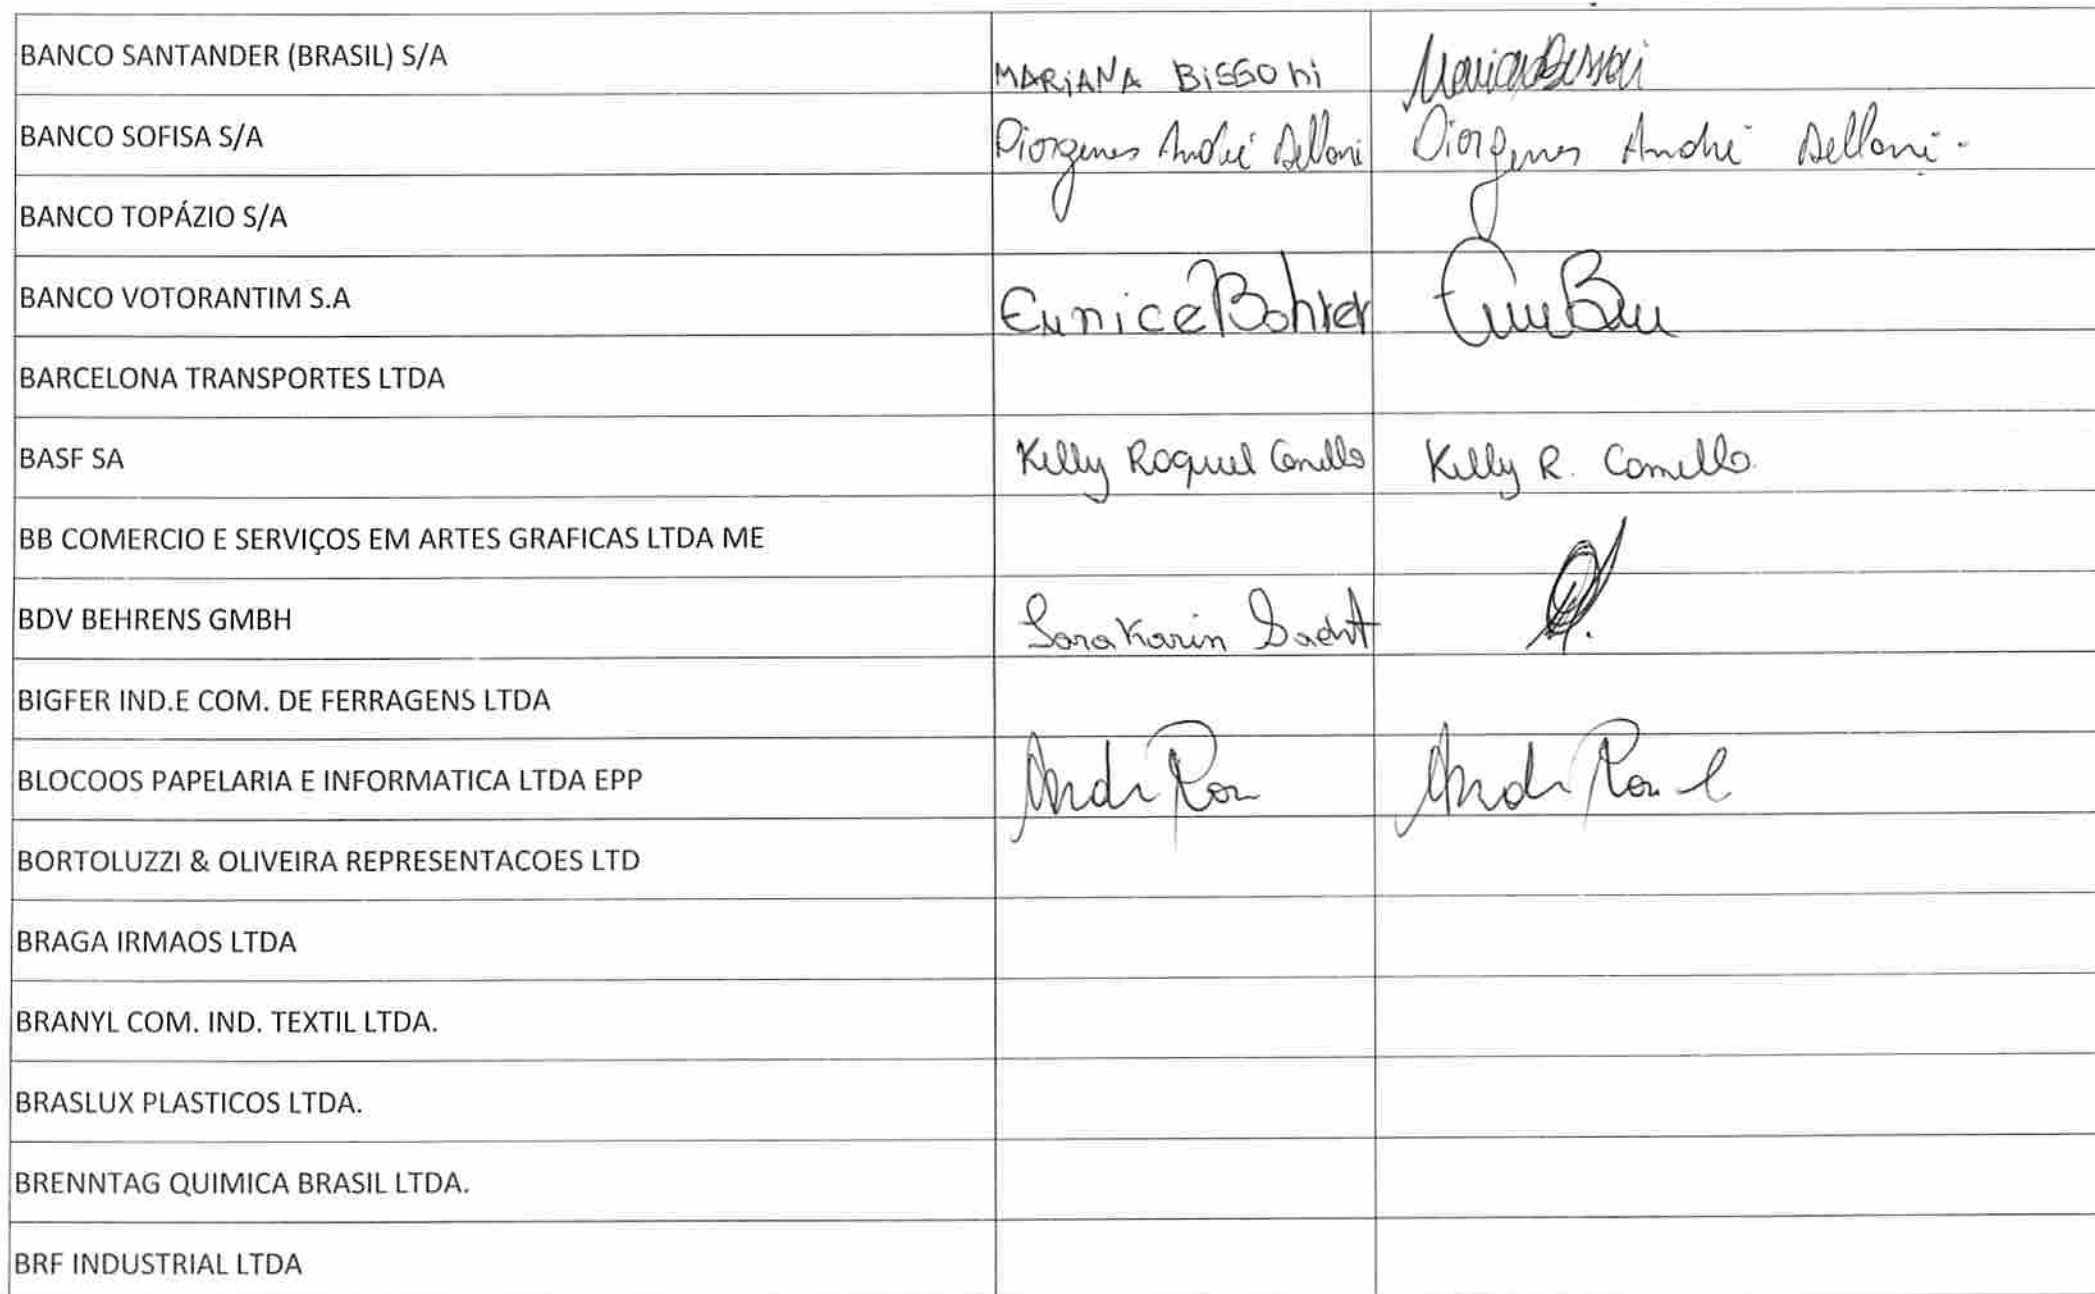 BANCO SANTANDER (BRASIL) S/A MARIANA BISSONI
BANCO SOFISA S/A Diorgenes André Delloni Diorgenes André Delloni
BANCO TOPÁZIO S/A
BANCO VOTORANTIM S.A Eunice Bohrer
BARCELONA TRANSPORTES LTDA
BASF SA Kelly Raquel Comello Kelly R. Comello
BB COMERCIO E SERVIÇOS EM ARTES GRAFICAS LTDA ME
BDV BEHRENS GMBH Sara Karin
BIGFER IND.E COM. DE FERRAGENS LTDA
BLOCOOS PAPELARIA E INFORMATICA LTDA EPP
BORTOLUZZI & OLIVEIRA REPRESENTACOES LTD
BRAGA IRMAOS LTDA
BRANYL COM. IND. TEXTIL LTDA.
BRASLUX PLASTICOS LTDA.
BRENNTAG QUIMICA BRASIL LTDA.
BRF INDUSTRIAL LTDA